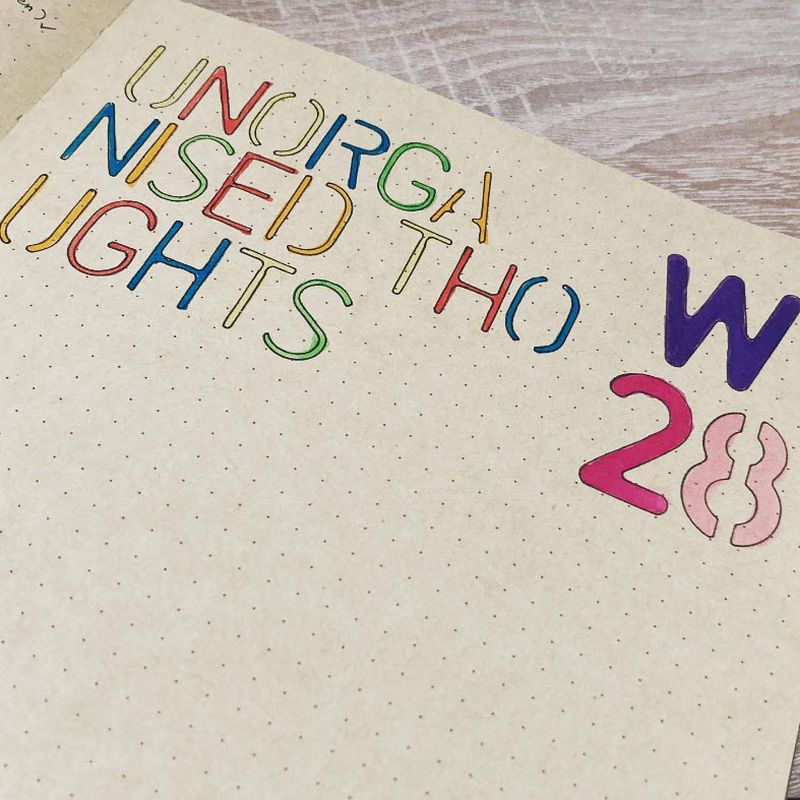 UNORGA
NISED THO
UGHTS
W
28